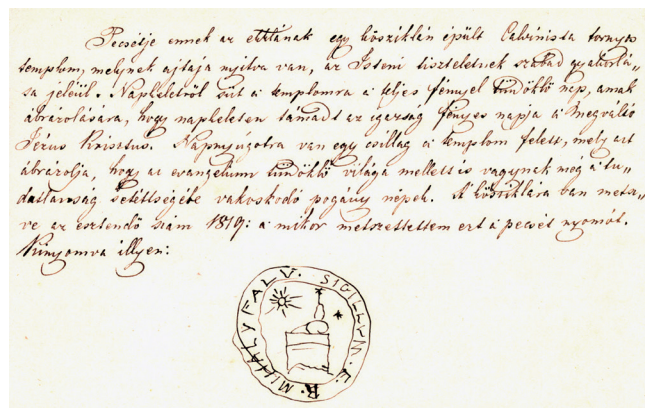 Pecsétje ennek az ekklának egy kősziklán épült Calvinista tornyos
templom, melynek ajtaja nyitva van, az Isteni tiszteletnek szabad gyakorlá„
sa jeléül. Napkeletről süt a templomra a teljes fényel tündöklő nap, annak
ábrázolására, hogy napkeleten támadt az igazság fényes napja a Megváltó
Jézus Krisztus. Napnyúgotra van egy csillag a templom felett, mely azt
ábrázolja, hogy az evangelium tündöklő világa mellett is vagynak még a tu„
datlanság setéttségébe vakoskodó pogány népek. A kősziklára van metsz„
ve az esztendő szám 1819: a mikor metszettettem ezt a pecsét nyomót.
Kinyomva illyen:
SIGILLUM. E. R. MIHALYFALV.